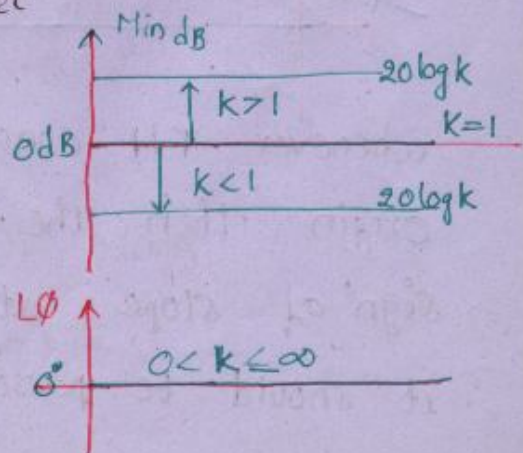 M in dB
20 log k
K > 1
K = 1
0 dB
K < 1
20 log k
LØ
0°
0 < K ≤ ∞